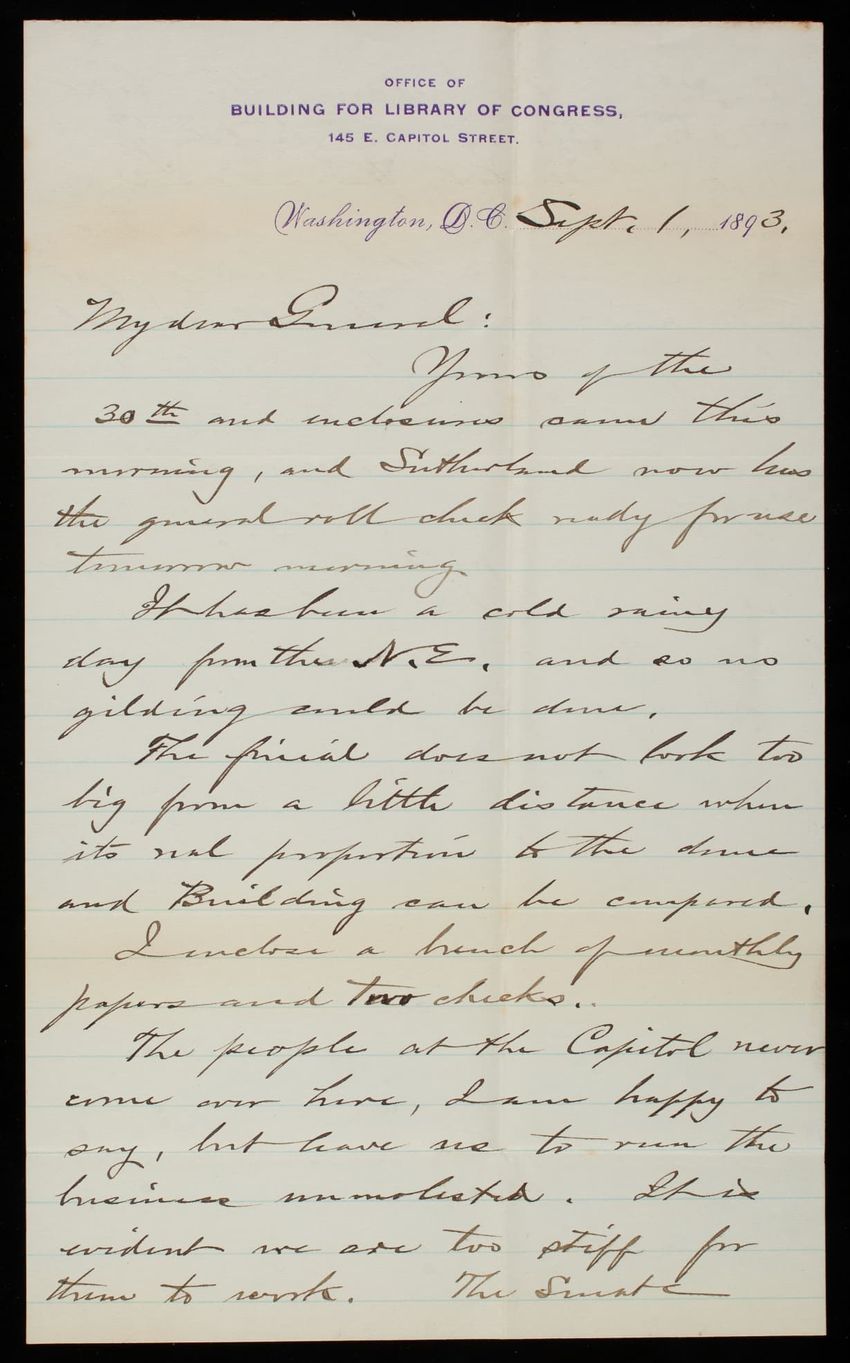 OFFICE OF
BUILDING FOR LIBRARY OF CONGRESS,
145 E. CAPITOL STREET.
Washington, D.C. Sept. 1, 1893.
My dear General:
Yours of the
30th and enclosures came this
morning, and Sutherland now has
the general roll check ready for use
tomorrow morning
It has been a cold rainy
day from the N.E. and so no
gilding could be done.
The finial does not look too
big from a little distance when
its real proportion to the dome
and Building can be compared.
I enclose a bunch of monthly
papers and two checks..
The people at the Capitol never
come over here, I am happy to
say, but leave us to run the
business unmolested. It is
evident we are too stiff for
them to work. The Senate